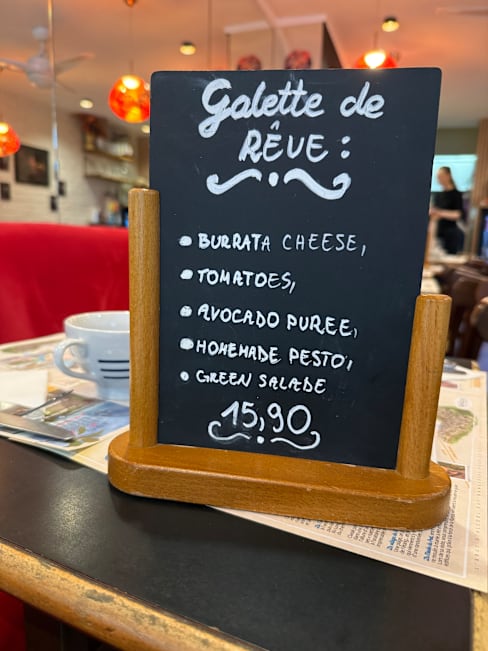 Galette de
RÊVE :
• BURRATA CHEESE,
• TOMATOES,
• AVOCADO PUREE,
• HOMEMADE PESTO,
• GREEN SALADE
15,90